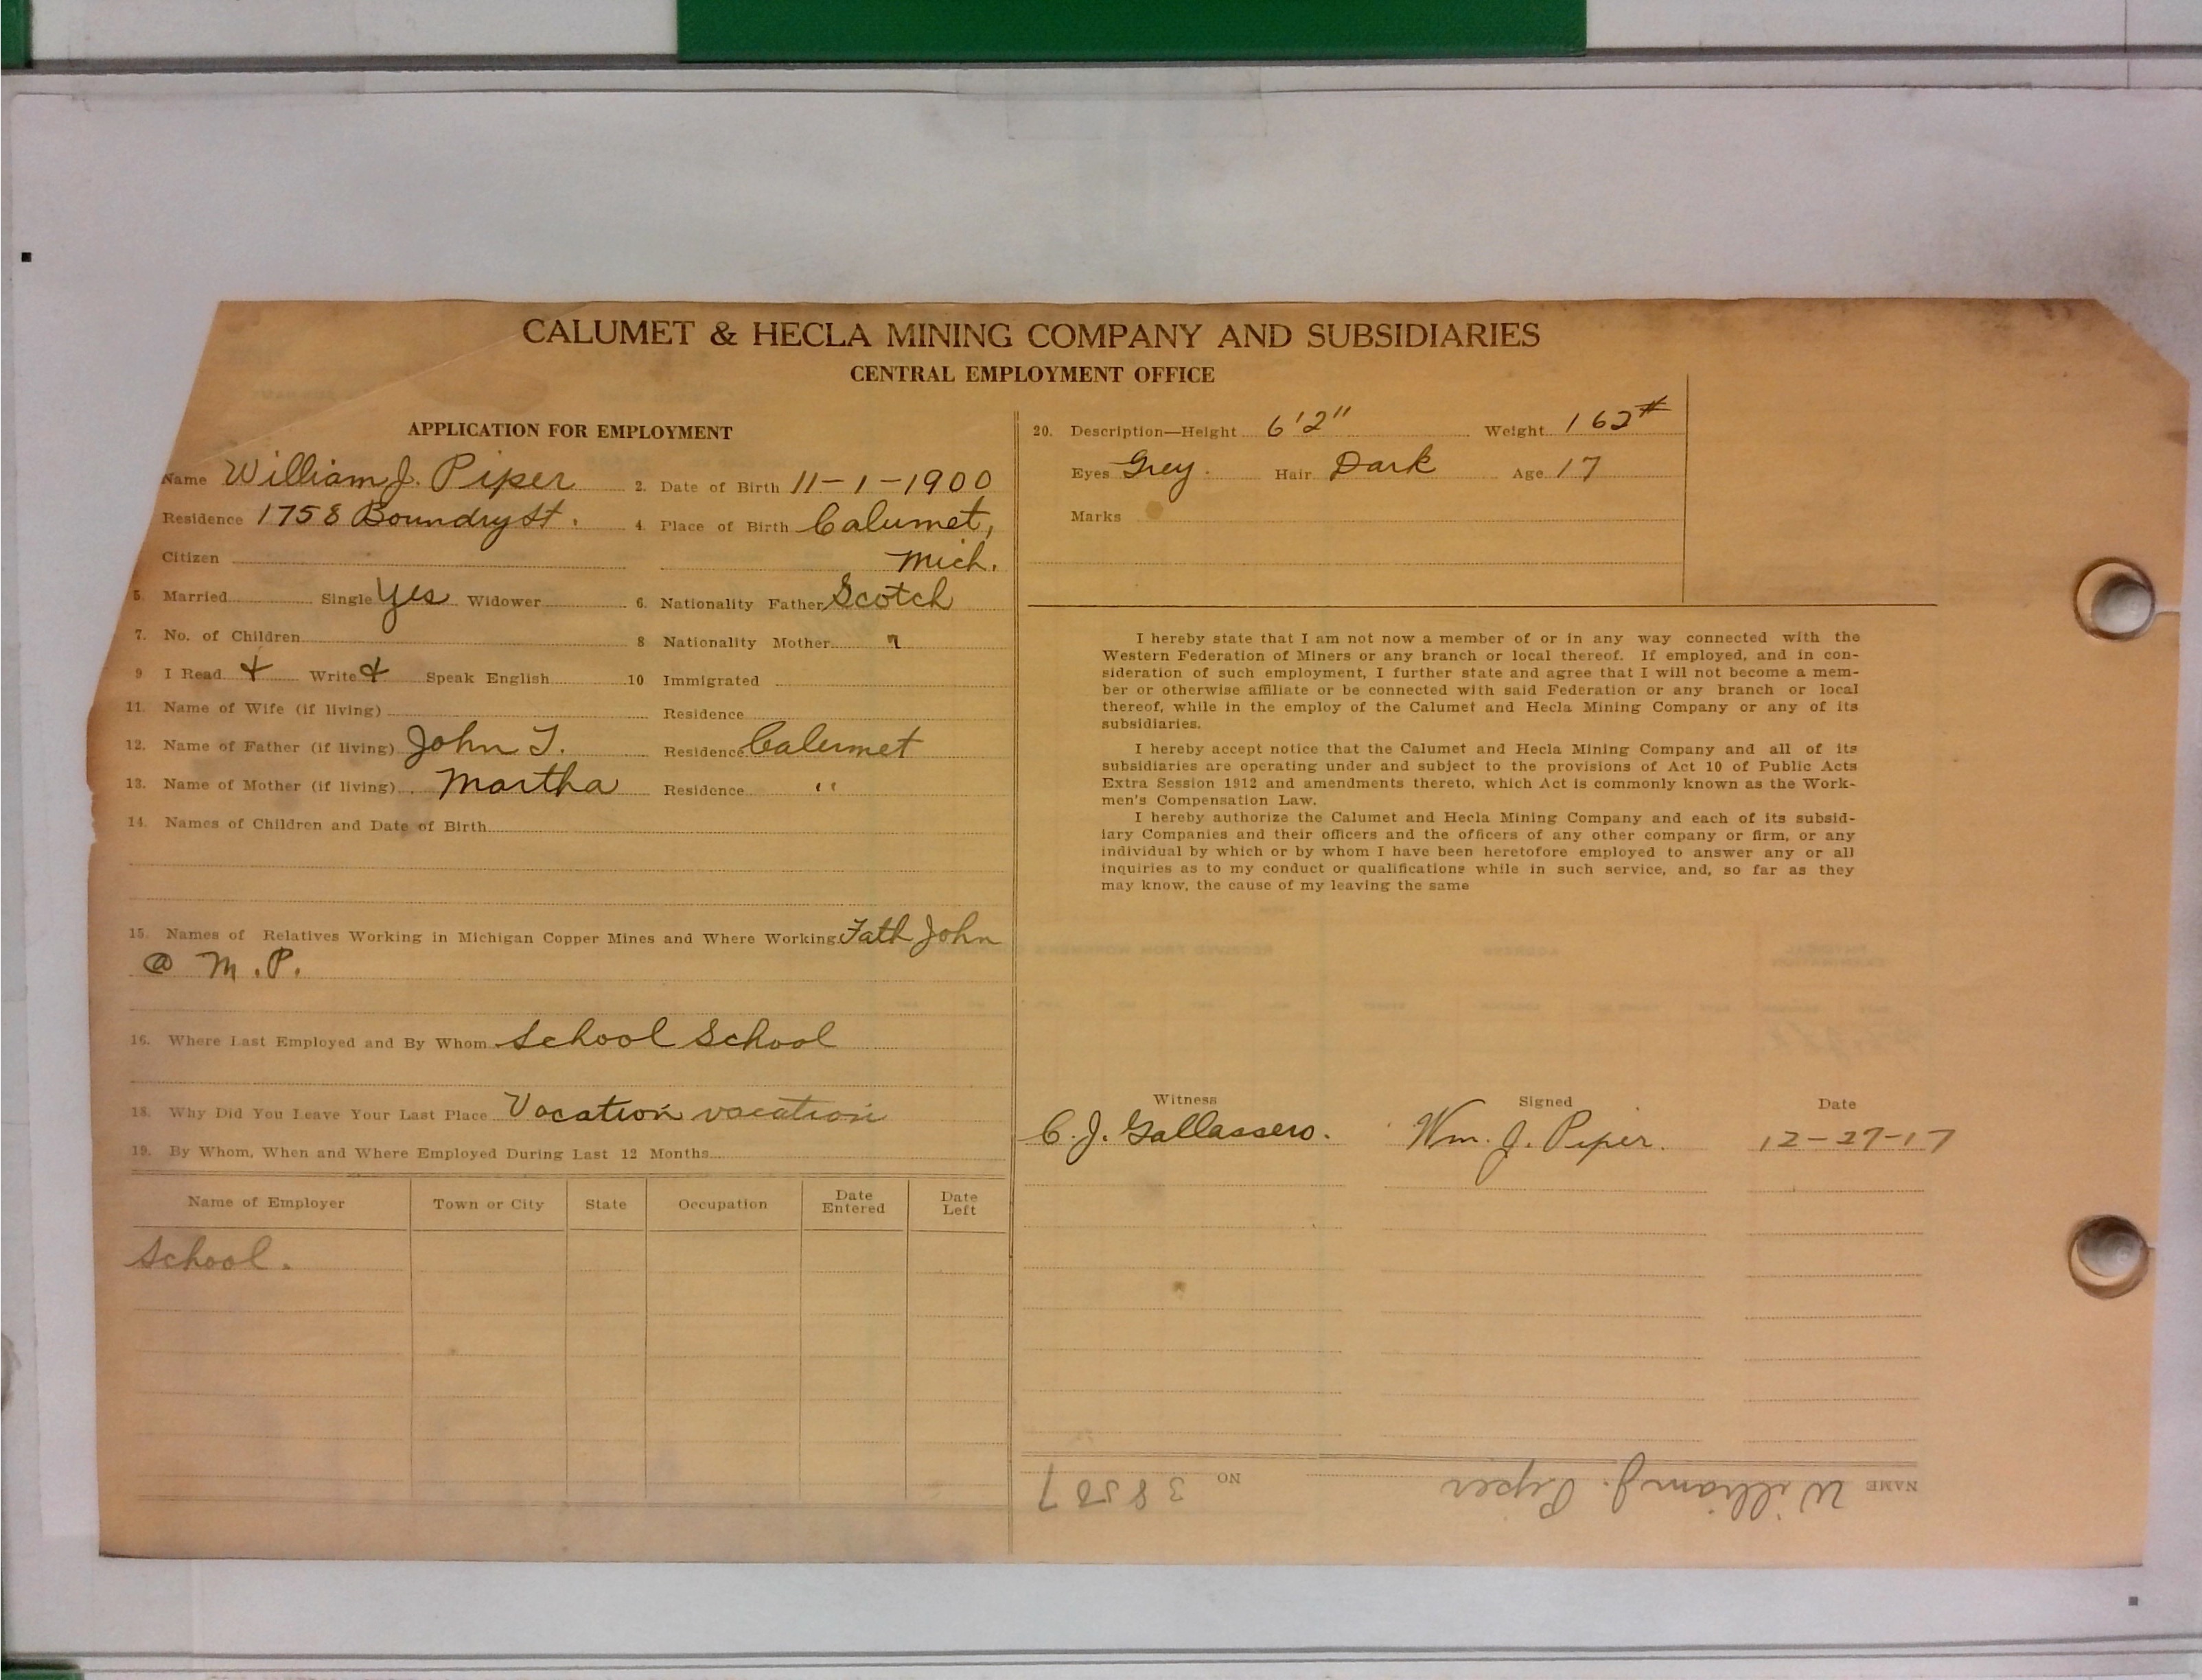 CALUMET & HECLA MINING COMPANY AND SUBSIDIARIES
CENTRAL EMPLOYMENT OFFICE
APPLICATION FOR EMPLOYMENT
Name William J. Piper 2. Date of Birth 11-1-1900
Residence 1758 Boundry St. 4. Place of Birth Calumet,
Citizen Mich.
5. Married Single Yes Widower 6. Nationality Father Scotch
7. No. of Children 8 Nationality Mother "
9 I Read & Write & Speak English 10 Immigrated
11. Name of Wife (if living) Residence
12. Name of Father (if living) John T. Residence Calumet
13. Name of Mother (if living) Martha Residence "
14. Names of Children and Date of Birth
15. Names of Relatives Working in Michigan Copper Mines and Where Working Fath John
@ M.P.
16. Where Last Employed and By Whom School School
18. Why Did You Leave Your Last Place Vacation vacation
19. By Whom, When and Where Employed During Last 12 Months
Name of Employer Town or City State Occupation Date Entered Date Left
School.
20. Description—Height 6'2" Weight 162#
Eyes Grey. Hair Dark Age 17
Marks
I hereby state that I am not now a member of or in any way connected with the
Western Federation of Miners or any branch or local thereof. If employed, and in con-
sideration of such employment, I further state and agree that I will not become a mem-
ber or otherwise affiliate or be connected with said Federation or any branch or local
thereof, while in the employ of the Calumet and Hecla Mining Company or any of its
subsidiaries.
I hereby accept notice that the Calumet and Hecla Mining Company and all of its
subsidiaries are operating under and subject to the provisions of Act 10 of Public Acts
Extra Session 1912 and amendments thereto, which Act is commonly known as the Work-
men's Compensation Law.
I hereby authorize the Calumet and Hecla Mining Company and each of its subsid-
iary Companies and their officers and the officers of any other company or firm, or any
individual by which or by whom I have been heretofore employed to answer any or all
inquiries as to my conduct or qualifications while in such service, and, so far as they
may know, the cause of my leaving the same
Witness Signed Date
C. J. Gallassero. Wm. J. Piper. 12-27-17
NAME William J. Piper NO 38507